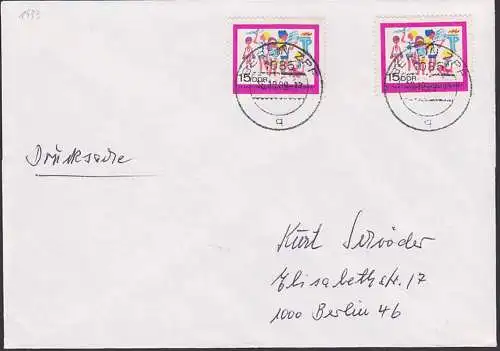 1433
15 DDR
15 DDR
1085
1085
q
q
Drucksache
Kurt Schröder
Elisabethstr. 17
1000 Berlin 46